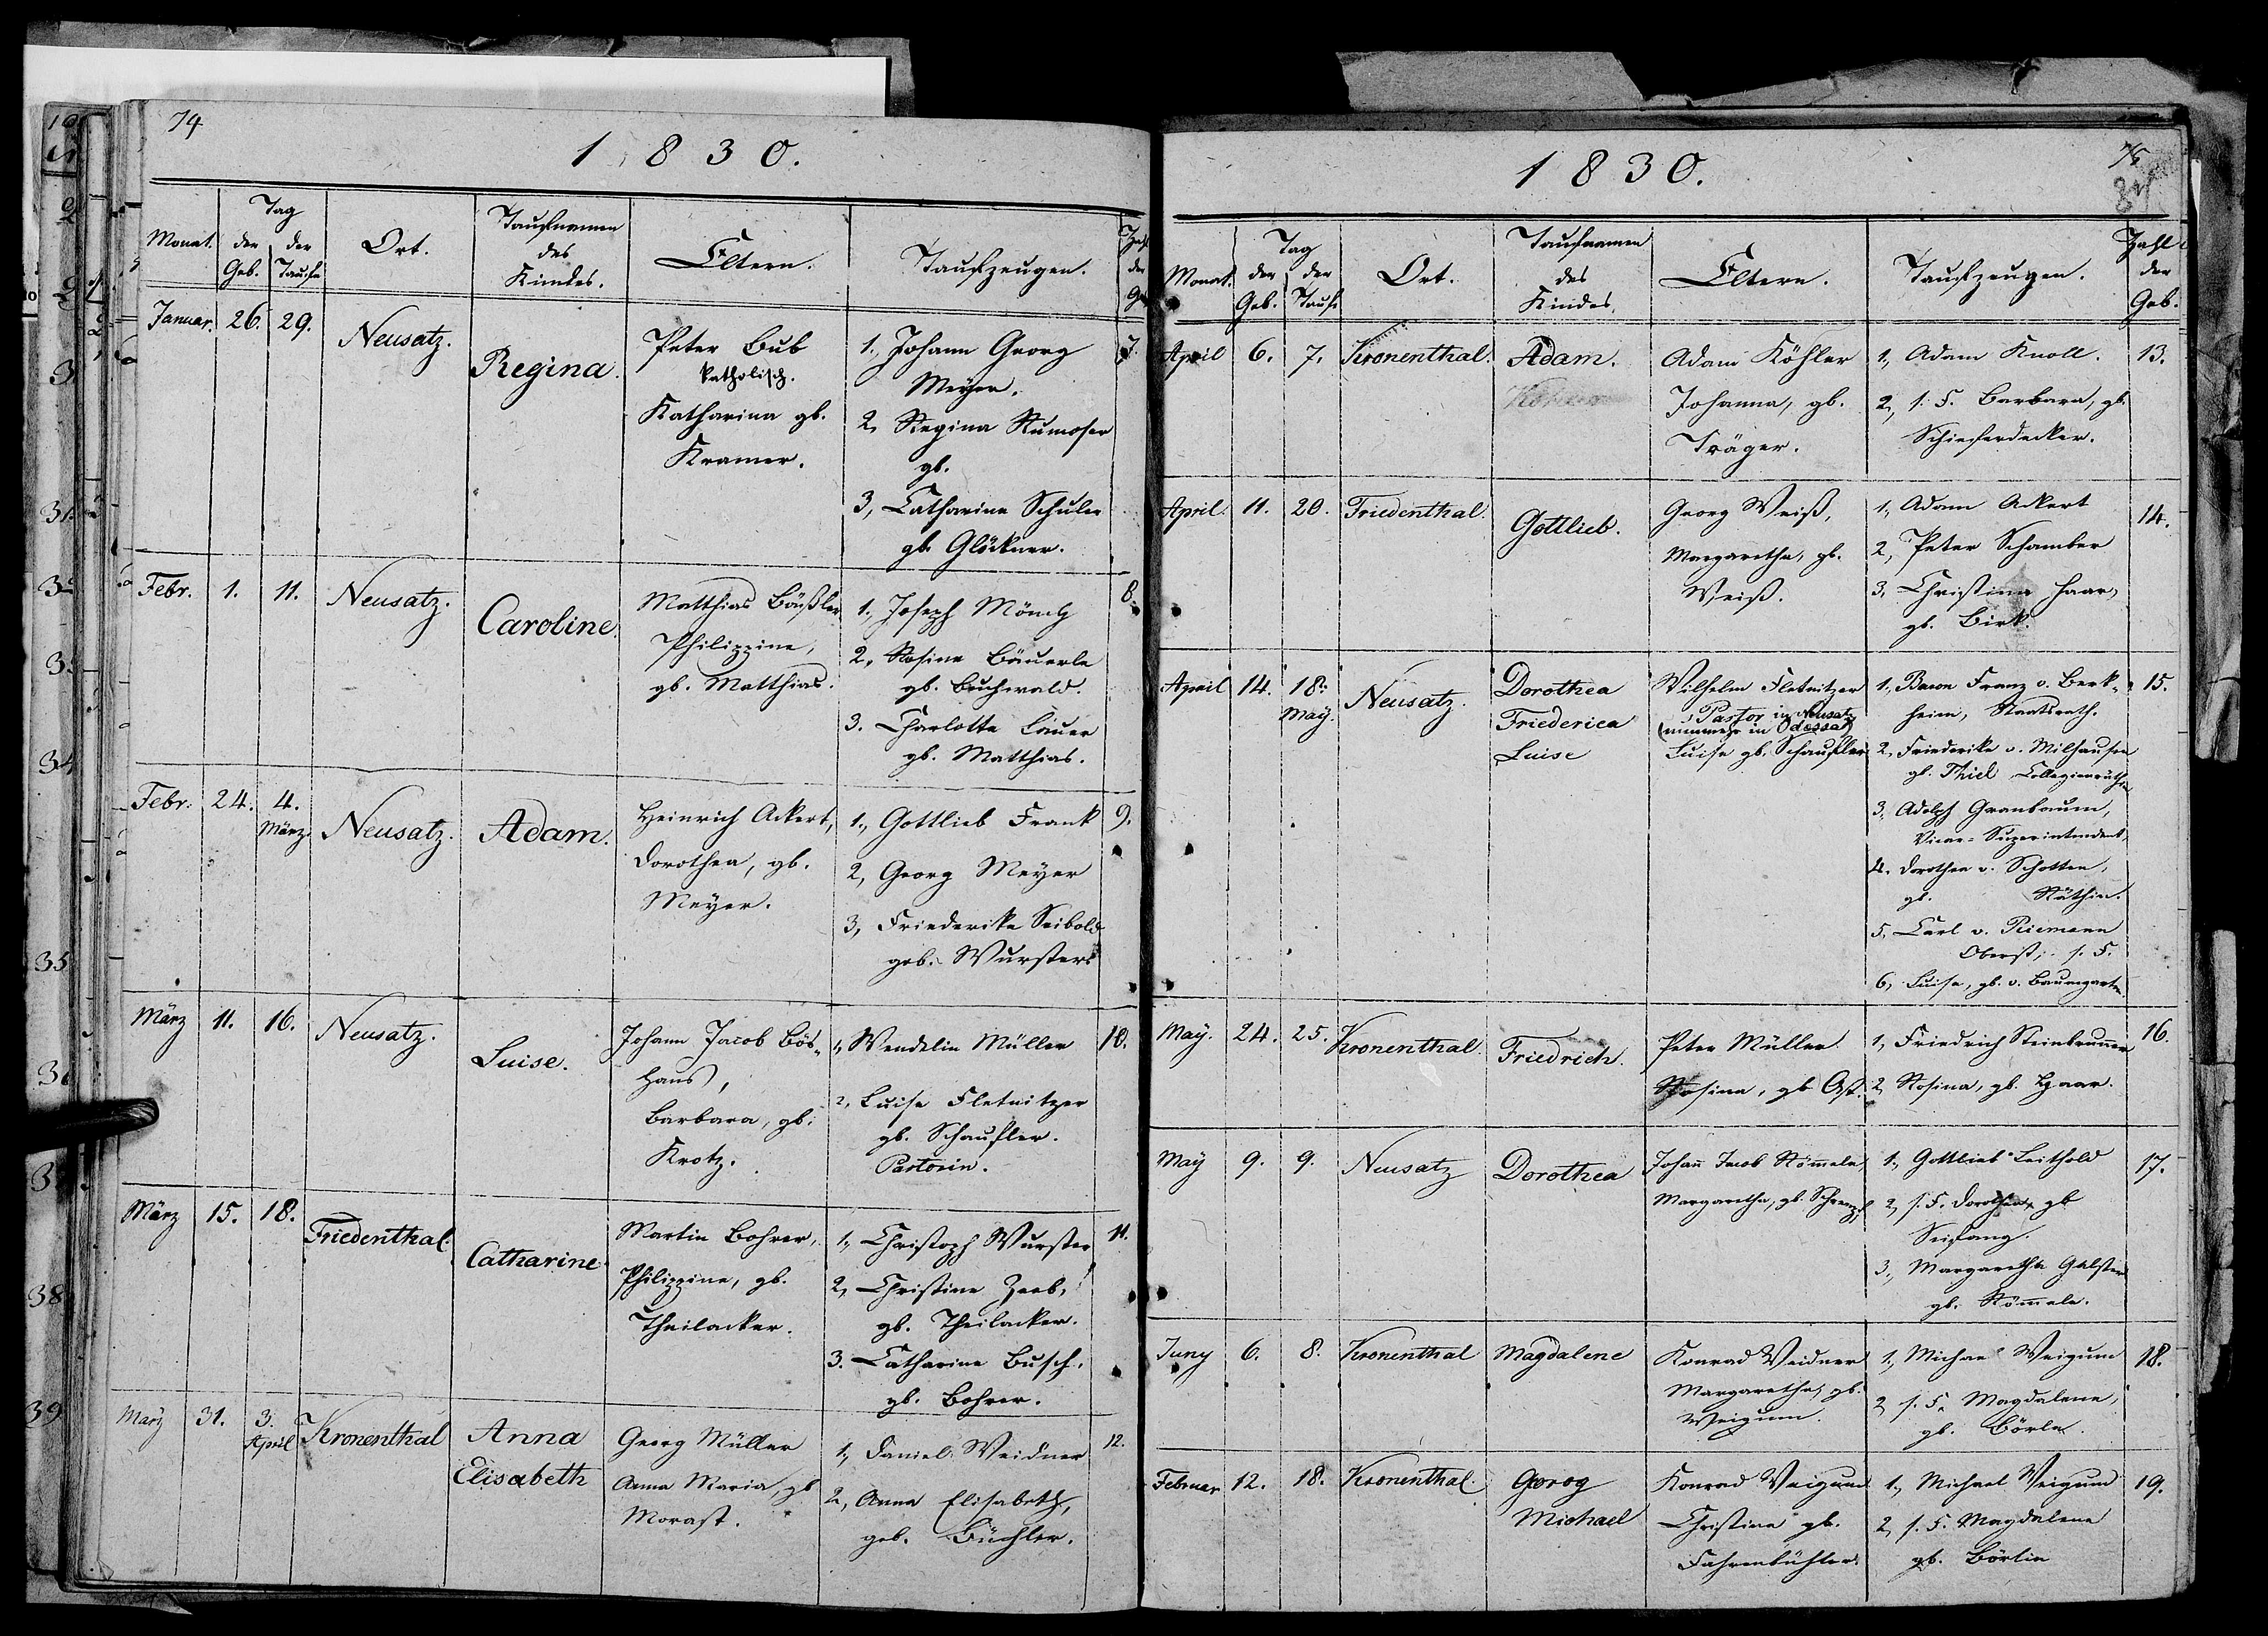 74
1830.
Monat.
Tag
der Geb.
der Taufe
Ort.
Taufnamen
des
Kindes.
Eltern.
Taufzeugen.
Januar. 26. 29. Neusatz.
Regina.
Peter Bub
katholisch.
Katharina gb.
Kramer.
1., Johann Georg
Meyer.
2, Regina Rumoser
gb.
3, Catharina Schuler
gb. Glöckner.
7.
Febr. 1. 11. Neusatz.
Caroline.
Matthias Bäßler
Philippine,
gb. Matthias.
1, Joseph Mönch
2, Rosine Bäuerle
gb. Buchwald.
3. Charlotte Lauer
gb. Matthias.
8.
Febr. 24. 4.
März.
Neusatz.
Adam.
Heinrich Ackert,
Dorothea, gb.
Meyer.
1., Gottlieb Frank
2, Georg Meyer
3, Friederike Seibold
geb. Wurster
9.
März 11. 16. Neusatz.
Luise.
Johann Jacob Bös-
haus,
Barbara, gb.
Krotz.
1, Wendelin Müller
2, Luise Fletnitzer
gb. Schaufler.
Pastorin.
10.
März 15. 18. Friedenthal.
Catharine
Martin Bohrer,
Philippine, gb.
Theilacker.
1., Christoph Wurster
2, Christine Zeeb,
gb. Theilacker.
3. Catharine Busch,
gb. Bohrer.
11.
März 31. 3.
April
Kronenthal
Anna
Elisabeth
Georg Müller
Anna Maria, gb
Morast.
1., Daniel Weidner
2, Anna Elisabeth,
geb. Büchler.
12.
75
1830.
Monat.
Tag
der Geb.
der Taufe
Ort.
Taufnamen
des
Kindes.
Eltern.
Taufzeugen.
Zahl
der
Geb.
April 6. 7. Kronenthal.
Adam.
Adam Köhler
Johanna, gb.
Träger.
1., Adam Knoll.
2, s. F. Barbara, gb.
Schieferdecker.
13.
April. 11. 20. Friedenthal.
Gottlieb.
Georg Weiß,
Margaretha, gb.
Weiß.
1., Adam Ackert
2, Peter Schamber
3, Christina Haar,
gb. Birk.
14.
April 14. 18.
May.
Neusatz.
Dorothea
Friederica
Luise
Wilhelm Fletnitzer
Pastor in Neusatz
(nunmehr in Odessa)
Luise gb. Schaufler
1., Baron Franz v. Berk-
heim, Staatsrath.
2, Friederike v. Milhausen
gb. Thiel Collegienräthin
3, Adolph Granbaum,
Vicar-Superintendent,
4. Dorothea v. Schotten,
gb. Räthin.
5, Carl v. Riemann
Oberst, s. F.
6, Luise, gb. v. Baumgarten
15.
May. 24. 25. Kronenthal.
Friedrich.
Peter Müller
Rosina, gb Ost.
1, Friedrich Steinbrunner
2, Rosina, gb. Haar.
16.
May 9. 9. Neusatz
Dorothea
Johann Jacob Römmele,
Margaretha, gb. Schrempf
1., Gottlieb Leithold
2, s. F. Dorothea gb
Seifang.
3., Margaretha Galster
gb. Römmele.
17.
Juny 6. 8. Kronenthal
Magdalene
Konrad Weidner
Margaretha, gb.
Weigum.
1., Michael Weigum
2, s. F. Magdalene,
gb. Börle.
18.
Februar 12. 18. Kronenthal.
Georg
Michael
Konrad Weigum
Christina gb.
Fahrenbühler.
1., Michael Weigum
2, s. F. Magdalena
gb. Börlin
19.